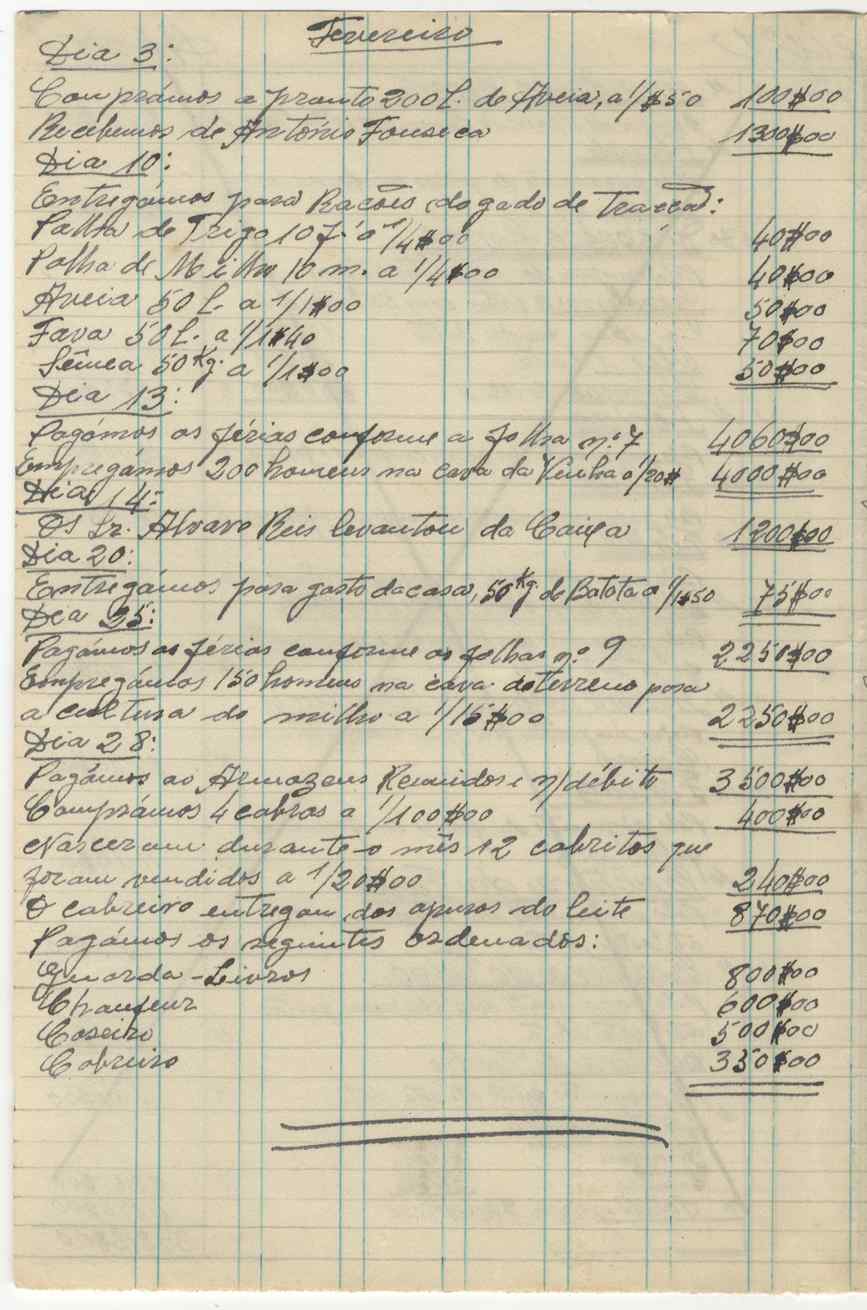 Fevereiro
Dia 3:
Comprámos a pronto 200 L. de Aveia, a 1/$50 100$00
Recebemos de António Fonseca 1300$00
Dia 10:
Entregámos para Rações do gado de Tracção:
Palha de Trigo 10 f. a 1/4$00 40$00
Palha de Milho 10 m. a 1/4$00 40$00
Aveia 50 L. a 1/1$00 50$00
Fava 50 L. a 1/1$40 70$00
Sêmea 50 Kg. a 1/1$00 50$00
Dia 13:
Pagámos as férias conforme a folha nº 7 4060$00
Empregámos 200 homens na cava da Vinha a 1/20$ 4000$00
Dia 14:
O Sr. Alvaro Reis levantou da Caixa 1200$00
Dia 20:
Entregámos para gasto da casa, 50 Kg. de Batata a 1/1$50 75$00
Dia 25:
Pagámos as férias conforme as folhas nº 9 2250$00
Empregámos 150 homens na cava do terreno para
a cultura do milho a 1/15$00 2250$00
Dia 28:
Pagámos ao Armazens Reunidos n/débito 3500$00
Comprámos 4 cabras a 1/100$00 400$00
Nasceram durante o mês 12 cabritos que
foram vendidos a 1/20$00 240$00
O cabreiro entregou dos apuros do leite 870$00
Pagámos os seguintes ordenados:
Guarda-Livros 800$00
Chaufeur 600$00
Caseiro 500$00
Cabreiro 350$00